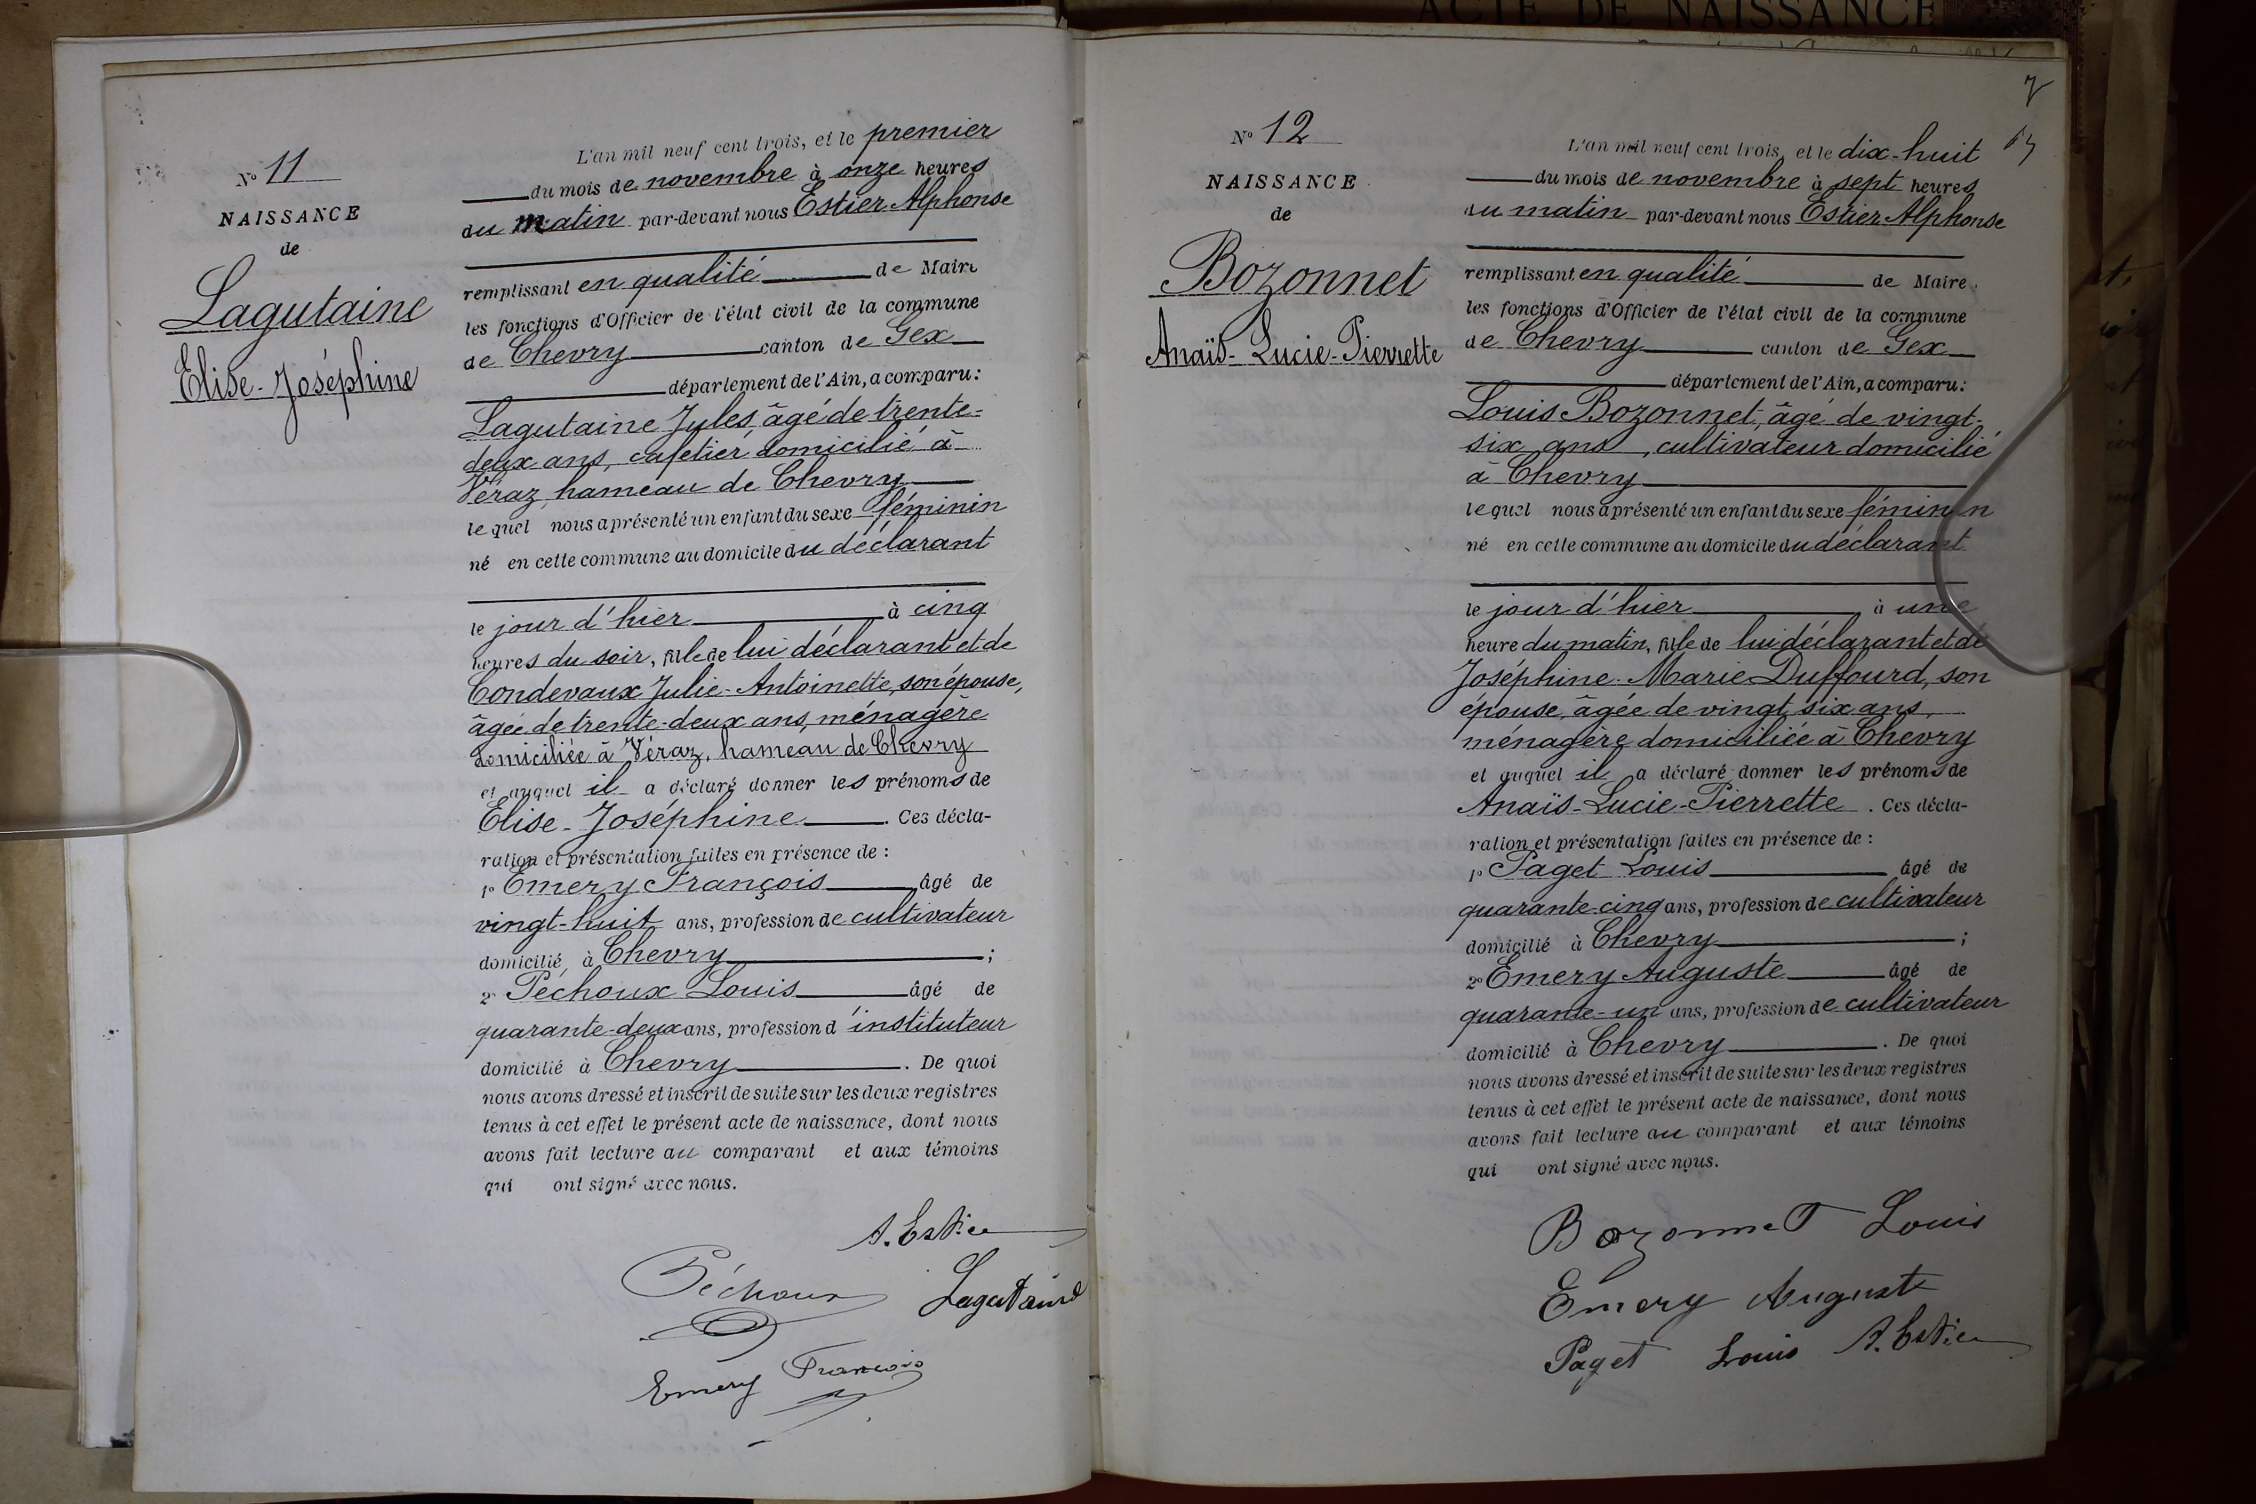 ACTE DE NAISSANCE
N° 11
NAISSANCE
de
Lagutaine
Elise-Joséphine
L'an mil neuf cent trois, et le premier
du mois de novembre à onze heures
du matin par-devant nous Estier Alphonse
remplissant en qualité de Maire
les fonctions d'Officier de l'état civil de la commune
de Chevry canton de Gex
département de l'Ain, a comparu :
Lagutaine Jules, âgé de trente-
deux ans, cafetier domicilié à
Véraz, hameau de Chevry
lequel nous a présenté un enfant du sexe féminin
né en cette commune au domicile du déclarant
le jour d'hier à cinq
heures du soir, fille de lui déclarant et de
Condevaux Julie-Antoinette, son épouse,
âgée de trente-deux ans, ménagère
domiciliée à Véraz, hameau de Chevry
et auquel il a déclaré donner les prénoms de
Elise-Joséphine. Ces décla-
ration et présentation faites en présence de :
1° Emery François âgé de
vingt-huit ans, profession de cultivateur
domicilié à Chevry ;
2° Péchoux Louis âgé de
quarante-deux ans, profession d'instituteur
domicilié à Chevry. De quoi
nous avons dressé et inscrit de suite sur les deux registres
tenus à cet effet le présent acte de naissance, dont nous
avons fait lecture au comparant et aux témoins
qui ont signé avec nous.
A. Estier
Péchoux Lagutaine
Emery François
7
N° 12
NAISSANCE
de
Bozonnet
Anaïs-Lucie-Pierrette
L'an mil neuf cent trois, et le dix-huit
du mois de novembre à sept heures
du matin par-devant nous Estier Alphonse
remplissant en qualité de Maire
les fonctions d'Officier de l'état civil de la commune
de Chevry canton de Gex
département de l'Ain, a comparu :
Louis Bozonnet, âgé de vingt-
six ans, cultivateur domicilié
à Chevry
lequel nous a présenté un enfant du sexe féminin
né en cette commune au domicile du déclarant
le jour d'hier à une
heure du matin, fille de lui déclarant et de
Joséphine-Marie Duffourd, son
épouse, âgée de vingt six ans,
ménagère domiciliée à Chevry
et auquel il a déclaré donner les prénoms de
Anaïs-Lucie-Pierrette. Ces décla-
ration et présentation faites en présence de :
1° Paget Louis âgé de
quarante-cinq ans, profession de cultivateur
domicilié à Chevry ;
2° Emery Auguste âgé de
quarante-un ans, profession de cultivateur
domicilié à Chevry. De quoi
nous avons dressé et inscrit de suite sur les deux registres
tenus à cet effet le présent acte de naissance, dont nous
avons fait lecture au comparant et aux témoins
qui ont signé avec nous.
Bozonnet Louis
Emery Auguste
Paget Louis A. Estier